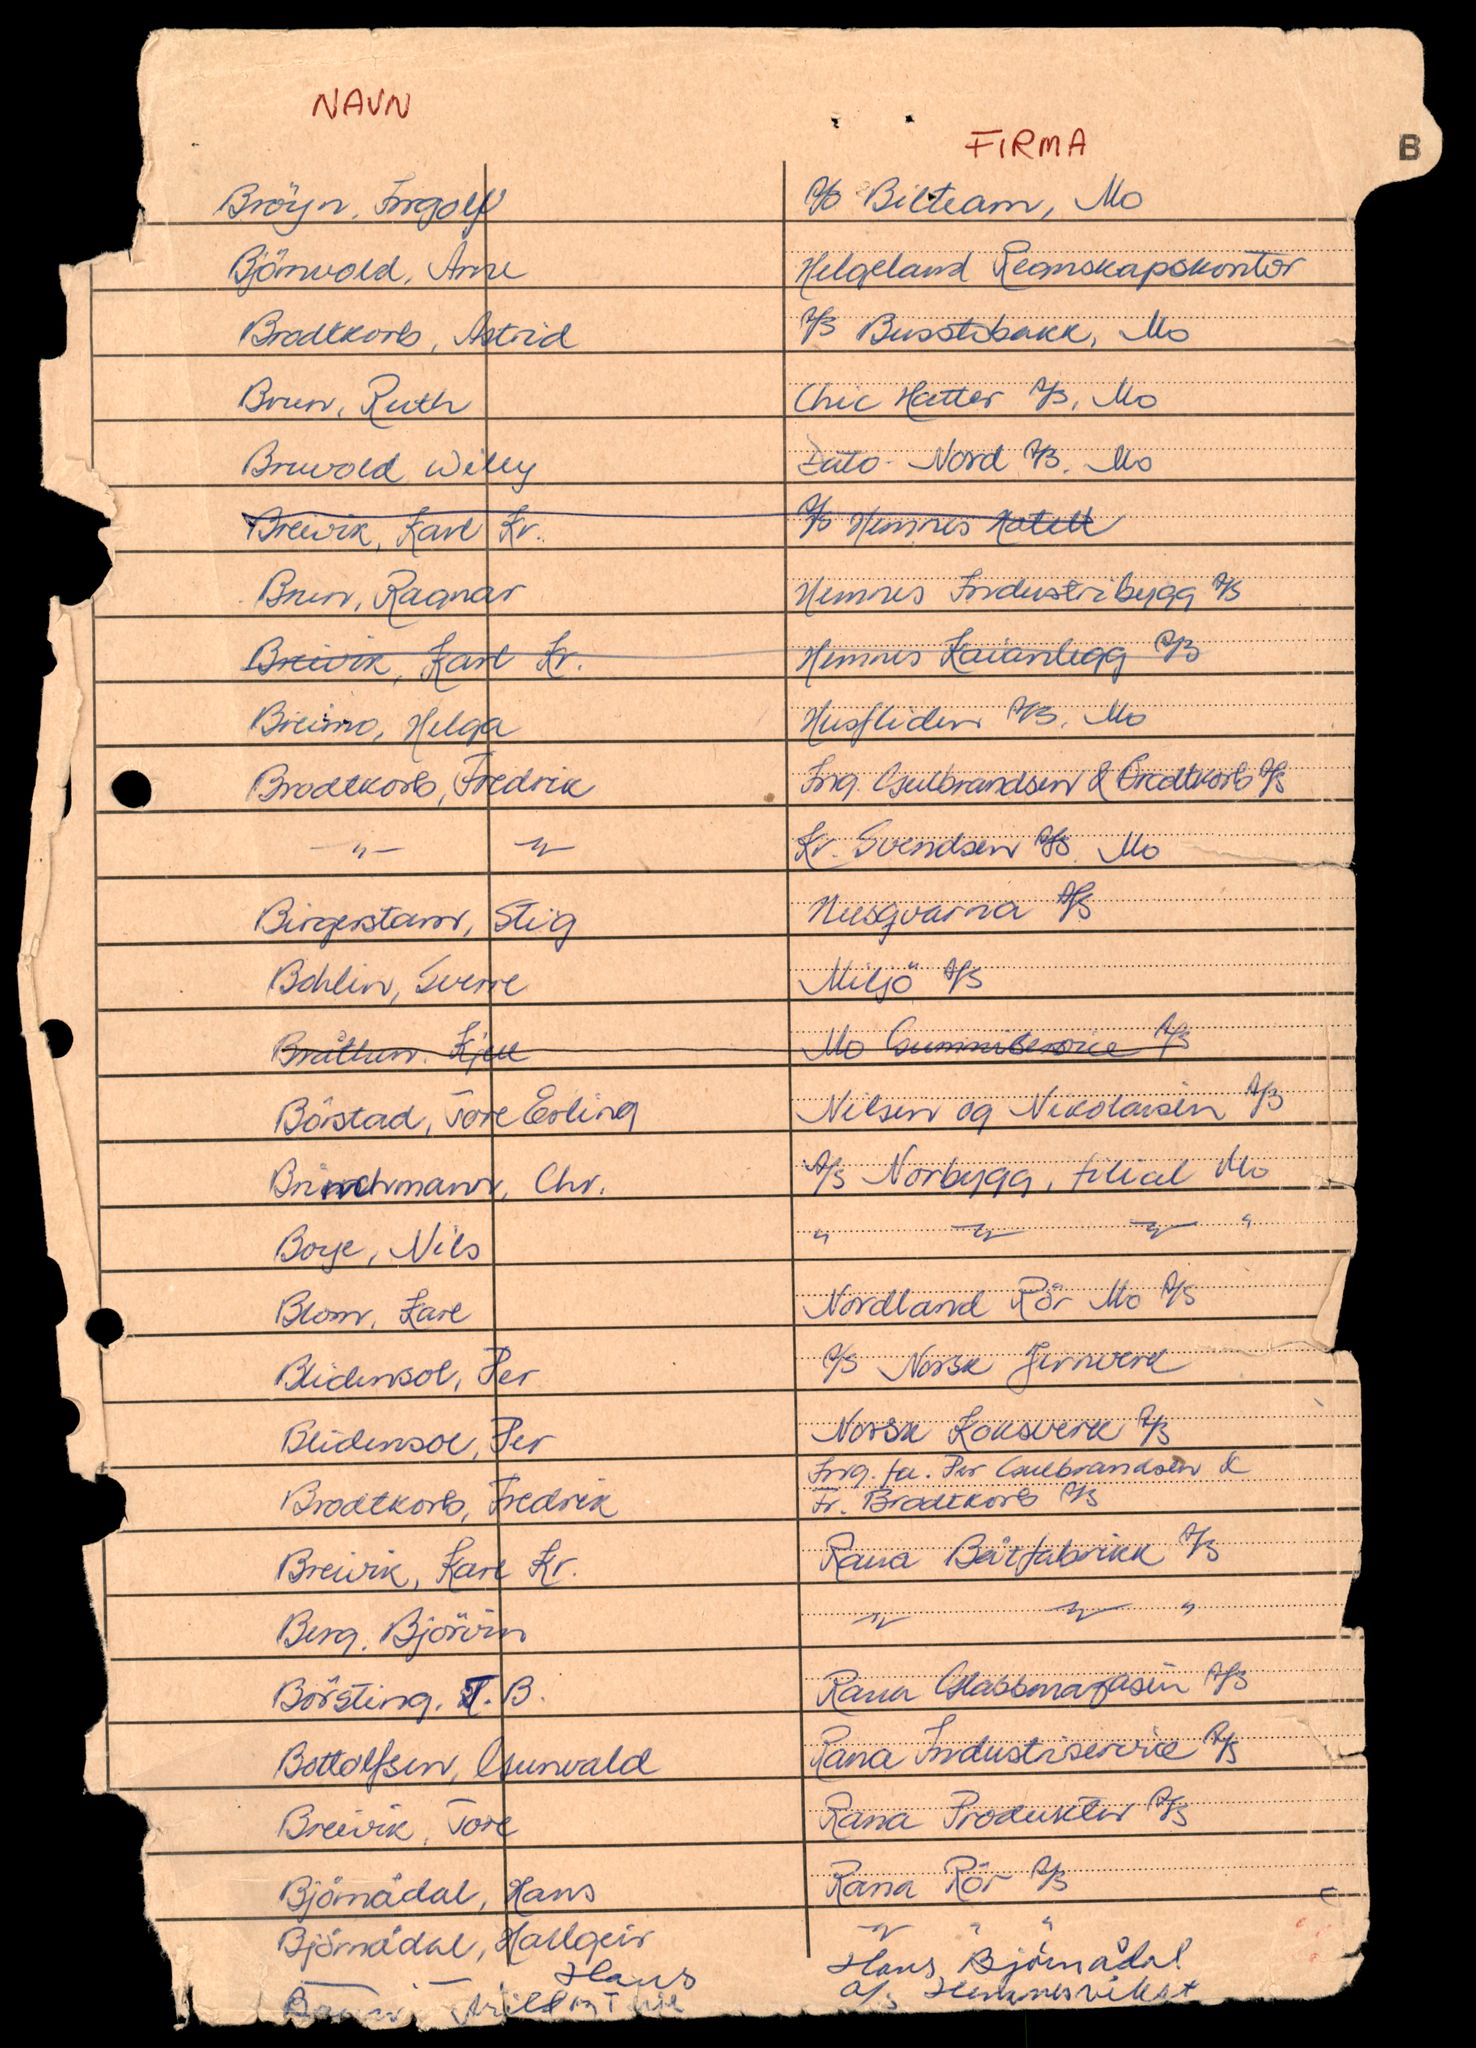 NAVN
FIRMA
B
Bröyn, Ingolf A/S Bilteam, Mo
Björnvold, Arne Helgeland Regnskapskontor
Brodtkorb, Astrid A/S Busstibakk, Mo
Brun, Ruth Chic Hatter A/S, Mo
Bruvold Willy Dato-Nord A/S. Mo
Breivik, Karl Kr. A/S Hemnes Hotell
Brun, Ragnar Hemnes Industribygg A/S
Breivik, Karl Kr. Hemnes Kaianlegg A/S
Breimo, Helga Husfliden A/S. Mo
Brodtkorb, Fredrik Ing. Gulbrandsen & Brodtkorb A/S
-"- -"- Kr. Svendsen A/S Mo
Birgerstam, Stig Husqvarna A/S
Bohlin, Sverre Miljö A/S
Bråthen. Kjell Mo Gummiservice A/S
Börstad, Tore Erling Nilsen og Nikolaisen A/S
Brinchmann, Chr. A/S Norbygg, filial Mo
Boye, Nils " -"- -"- "
Blom, Kare Nordland Rör Mo A/S
Blidensol, Per A/S Norsk Jernverk
Blidensol, Per Norsk Koksverk A/S
Brodtkorb, Fredrik Ing. fa. Per Gulbrandsen &
Fr. Brodtkorb A/S
Breivik, Karl Kr. Rana Båtfabrikk A/S
Berg. Björvin -"- -"- "
Börsting. T. B. Rana Glassmagasin A/S
Bottolfsen, Gunvald Rana Industriservice A/S
Breivik, Tore Rana Produkter A/S
Björnådal, Hans Rana Rör A/S
Björnådal, Hallgeir -"- " "
Hans Hans Björnådal
A/S Hemnesvikst